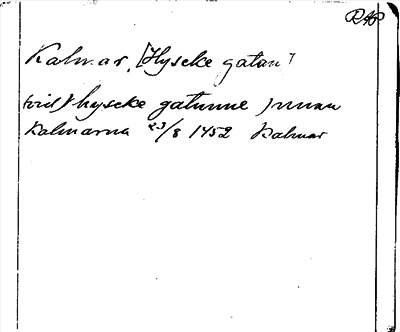 RAP
Kalmar, [Hyseke gatan]
(vid) hyseke gatunne jnnan
Kalmarna 23/8 1452 Kalmar